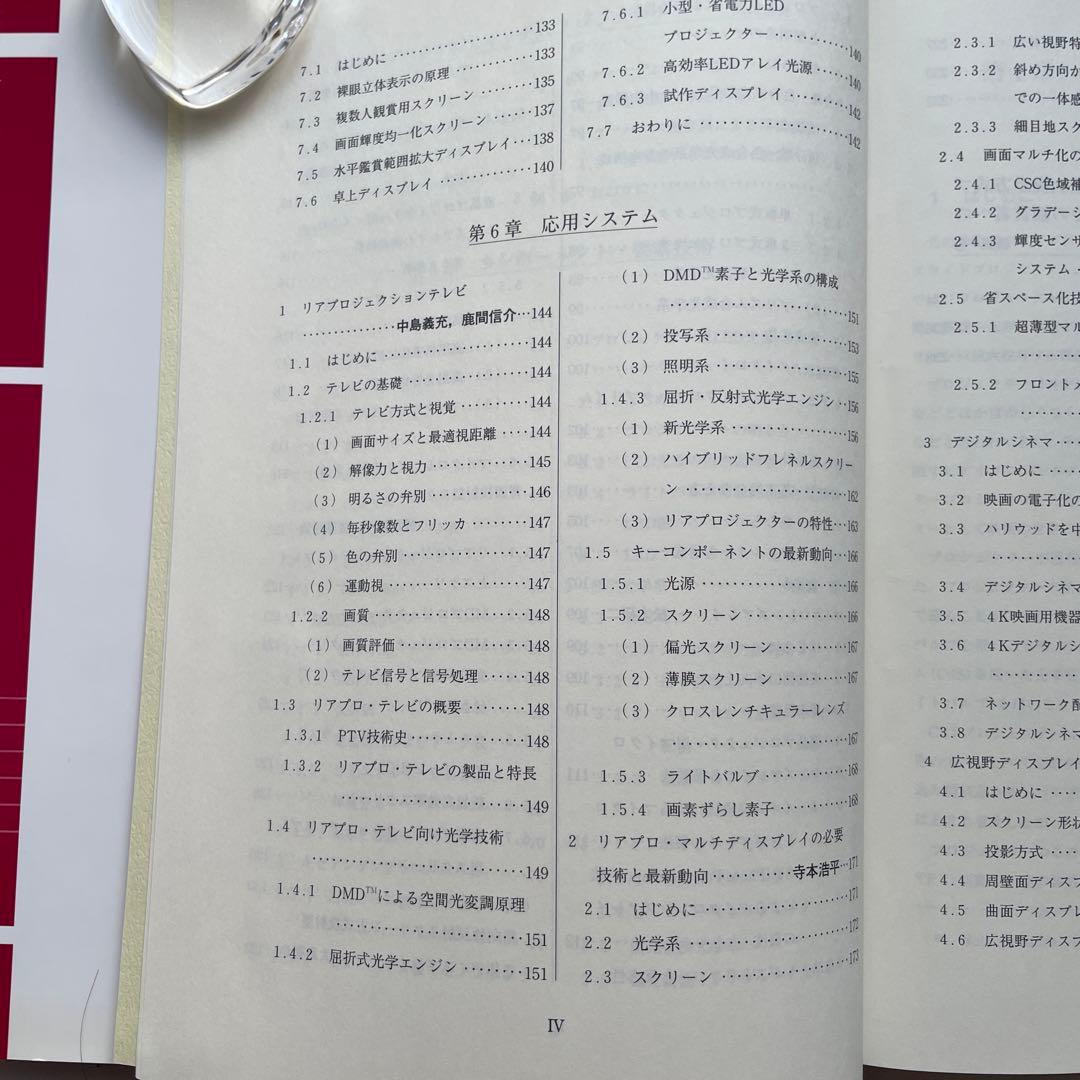 7.1 はじめに ……………………133
7.2 裸眼立体表示の原理 …………133
7.3 複数人観賞用スクリーン ………135
7.4 画面輝度均一化スクリーン ……137
7.5 水平鑑賞範囲拡大ディスプレイ…138
7.6 卓上ディスプレイ ……………140
7.6.1 小型・省電力LED
プロジェクター …………140
7.6.2 高効率LEDアレイ光源……140
7.6.3 試作ディスプレイ…………142
7.7 おわりに ……………………142
第6章 応用システム
1 リアプロジェクションテレビ
……………中島義充，鹿間信介…144
1.1 はじめに ……………………144
1.2 テレビの基礎 …………………144
1.2.1 テレビ方式と視覚 …………144
(1) 画面サイズと最適視距離 ……144
(2) 解像力と視力………………145
(3) 明るさの弁別 ………………146
(4) 毎秒像数とフリッカ …………147
(5) 色の弁別 ……………………147
(6) 運動視 ………………………147
1.2.2 画質 ………………………148
(1) 画質評価 ……………………148
(2) テレビ信号と信号処理 ………148
1.3 リアプロ・テレビの概要 ………148
1.3.1 PTV技術史…………………148
1.3.2 リアプロ・テレビの製品と特長
……………………………149
1.4 リアプロ・テレビ向け光学技術
……………………………149
1.4.1 DMD™による空間光変調原理
……………………………151
1.4.2 屈折式光学エンジン …………151
(1) DMD™素子と光学系の構成
……………………………151
(2) 投写系 ………………………153
(3) 照明系 ………………………155
1.4.3 屈折・反射式光学エンジン…156
(1) 新光学系 ……………………156
(2) ハイブリッドフレネルスクリー
ン ……………………………162
(3) リアプロジェクターの特性…163
1.5 キーコンポーネントの最新動向…166
1.5.1 光源 ………………………166
1.5.2 スクリーン …………………166
(1) 偏光スクリーン ………………167
(2) 薄膜スクリーン ………………167
(3) クロスレンチキュラーレンズ
……………………………167
1.5.3 ライトバルブ ………………168
1.5.4 画素ずらし素子 ……………168
2 リアプロ・マルチディスプレイの必要
技術と最新動向 …………寺本浩平…171
2.1 はじめに ……………………171
2.2 光学系 ………………………172
2.3 スクリーン …………………173
IV
2.3.1 広い視野特
2.3.2 斜め方向か
での一体感
2.3.3 細目地スク
2.4 画面マルチ化の
2.4.1 CSC色域補
2.4.2 グラデーシ
2.4.3 輝度センサ
システム
2.5 省スペース化技
2.5.1 超薄型マル
2.5.2 フロントメ
3 デジタルシネマ……
3.1 はじめに ………
3.2 映画の電子化の
3.3 ハリウッドを中
3.4 デジタルシネマ
3.5 4K映画用機器
3.6 4Kデジタルシ
3.7 ネットワーク配
3.8 デジタルシネマ
4 広視野ディスプレイ
4.1 はじめに ……
4.2 スクリーン形状
4.3 投影方式 ……
4.4 周壁面ディスプ
4.5 曲面ディスプレ
4.6 広視野ディスプ